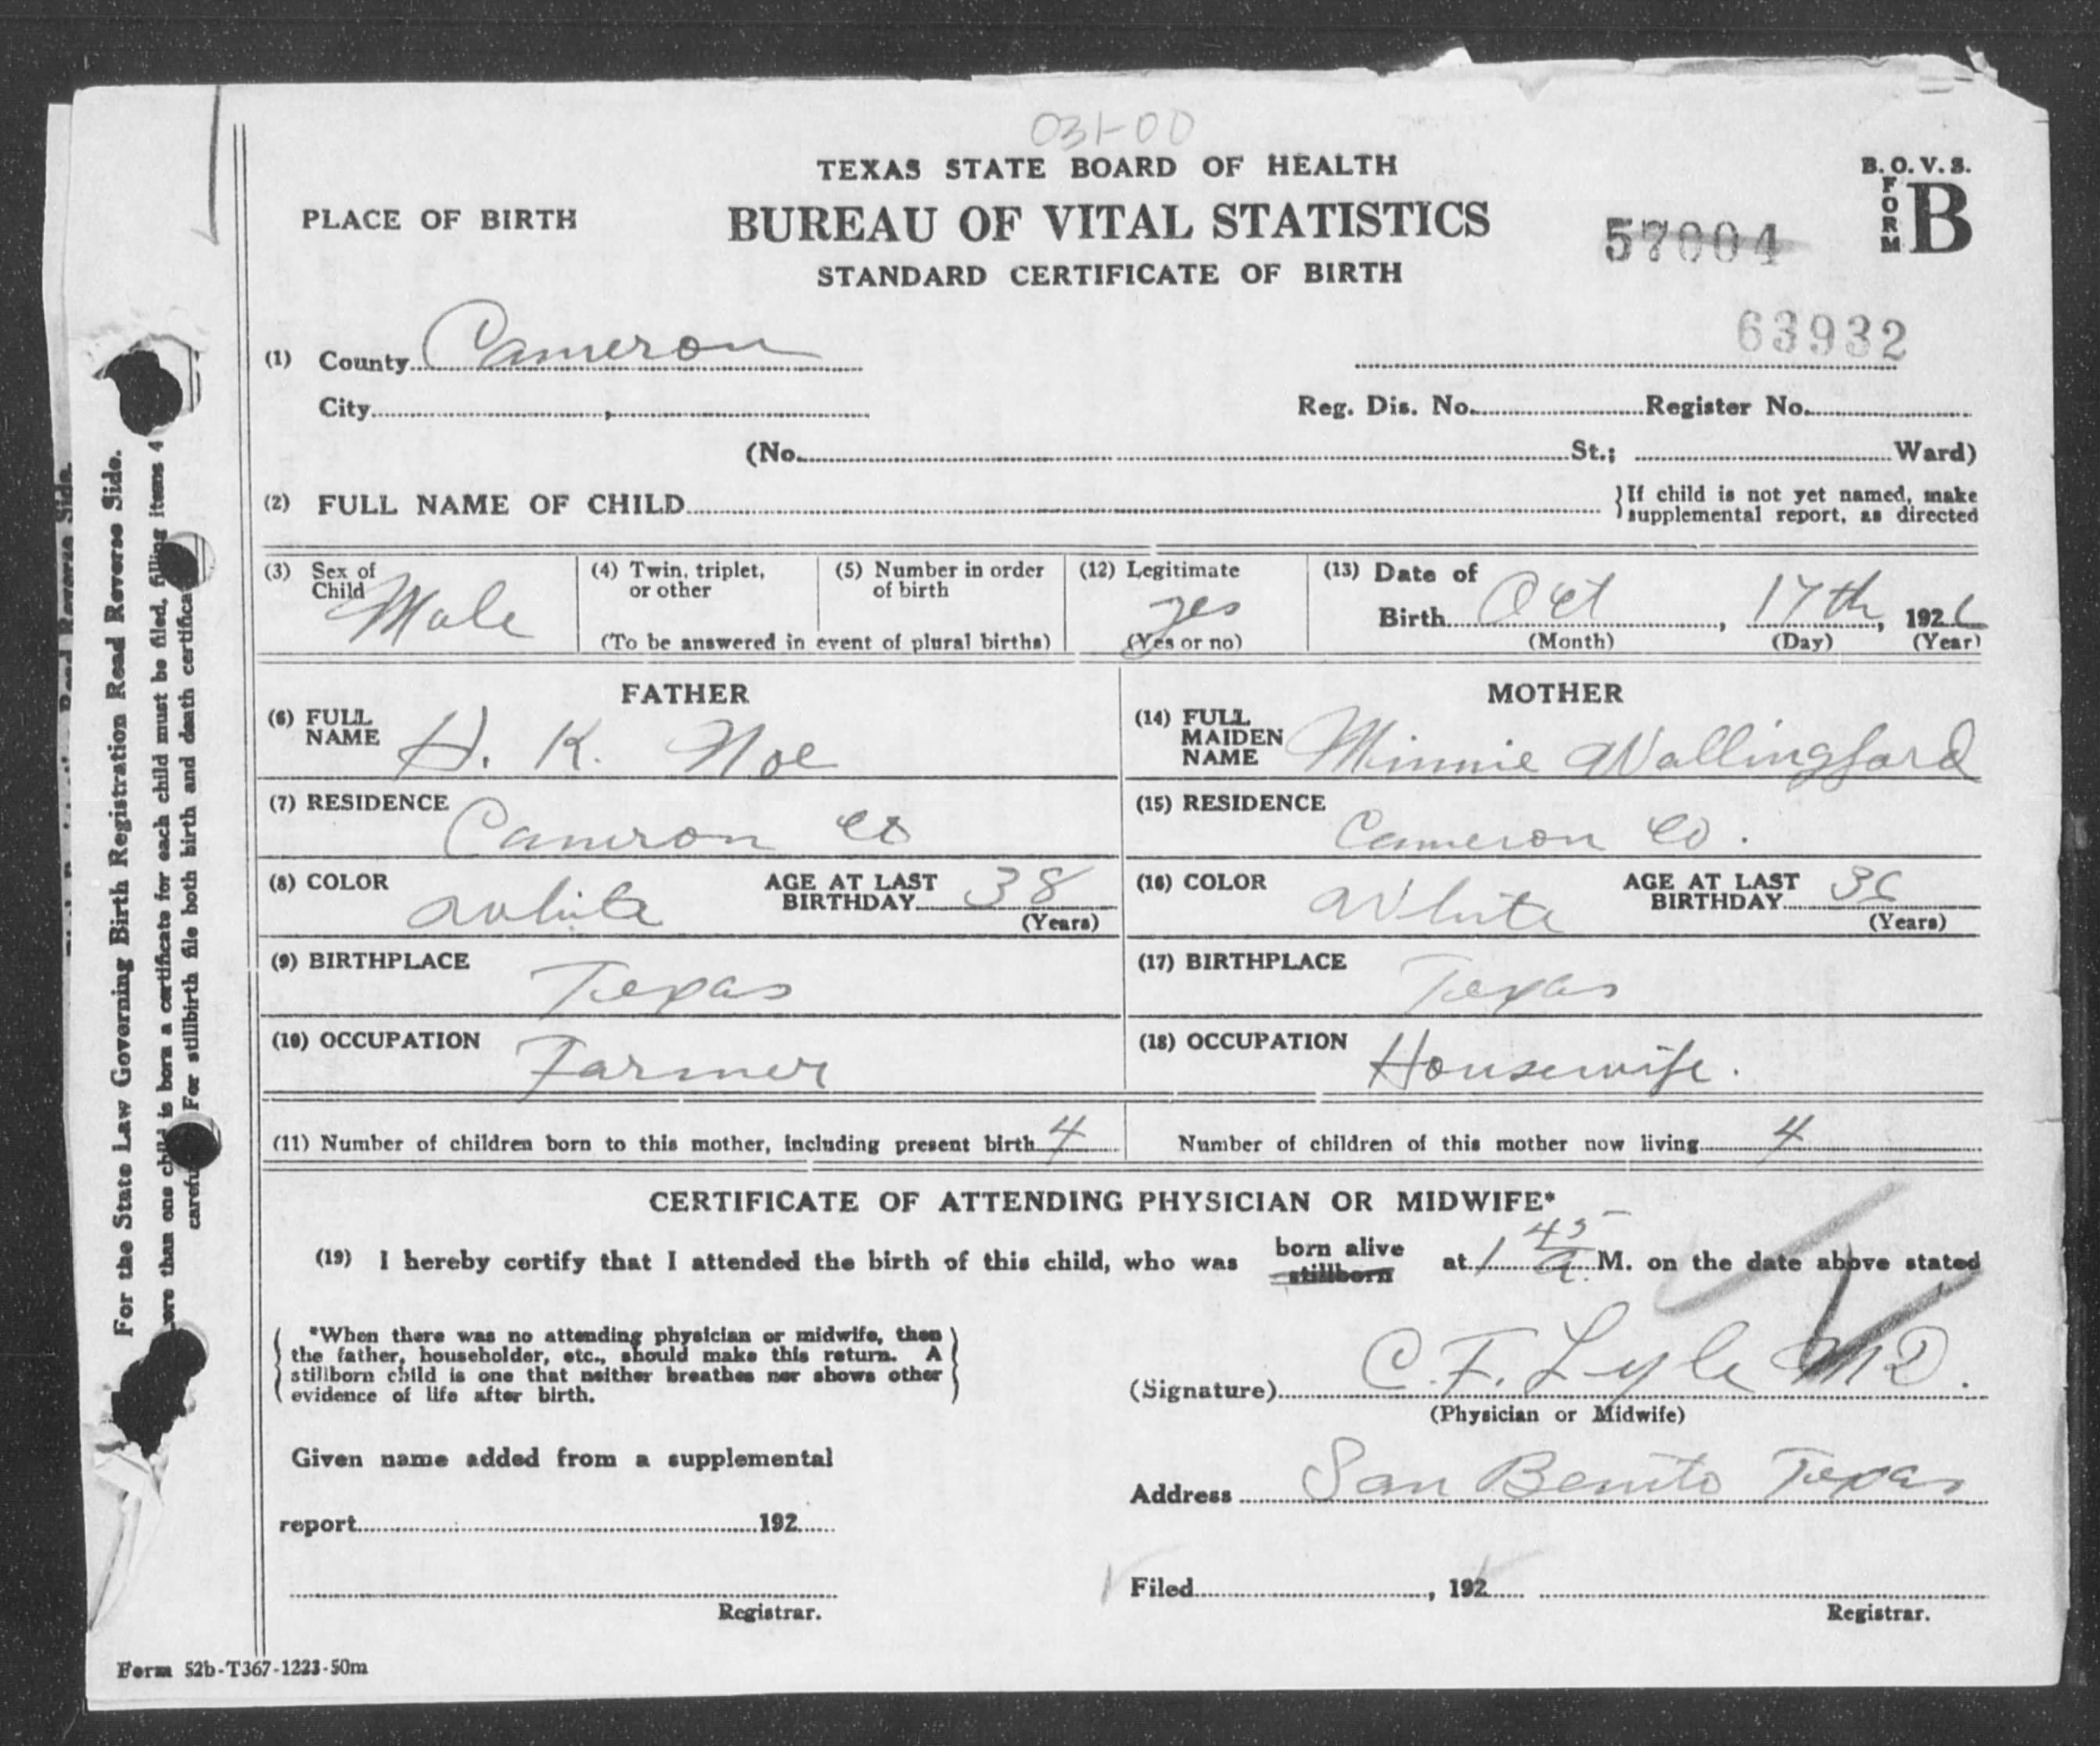 031-00
TEXAS STATE BOARD OF HEALTH
B. O. V. S.
FORM B
PLACE OF BIRTH
BUREAU OF VITAL STATISTICS
57004
STANDARD CERTIFICATE OF BIRTH
63932
(1) County Cameron
City , Reg. Dis. No. Register No.
(No. St.; Ward)
(2) FULL NAME OF CHILD } If child is not yet named, make
supplemental report, as directed
(3) Sex of Child Male
(4) Twin, triplet, or other
(5) Number in order of birth
(To be answered in event of plural births)
(12) Legitimate yes
(Yes or no)
(13) Date of
Birth Oct , 17th, 1926
(Month) (Day) (Year)
FATHER
(6) FULL NAME H. K. Noe
(7) RESIDENCE Cameron Co
(8) COLOR White AGE AT LAST BIRTHDAY 38
(Years)
(9) BIRTHPLACE Texas
(10) OCCUPATION Farmer
MOTHER
(14) FULL MAIDEN NAME Minnie Wallingford
(15) RESIDENCE Cameron Co.
(16) COLOR White AGE AT LAST BIRTHDAY 36
(Years)
(17) BIRTHPLACE Texas
(18) OCCUPATION Housewife.
(11) Number of children born to this mother, including present birth 4 Number of children of this mother now living 4
CERTIFICATE OF ATTENDING PHYSICIAN OR MIDWIFE*
(19) I hereby certify that I attended the birth of this child, who was born alive stillborn at 1 45 a. M. on the date above stated
*When there was no attending physician or midwife, then
the father, householder, etc., should make this return. A
stillborn child is one that neither breathes nor shows other
evidence of life after birth.
(Signature) C. F. Lyle M D.
(Physician or Midwife)
Given name added from a supplemental
report 192
Registrar.
Address San Benito Texas
Filed , 192
Registrar.
Form 52b-T367-1223-50m
For the State Law Governing Birth Registration Read Reverse Side.
more than one child is born a certificate for each child must be filed, filling items 4
For stillbirth file both birth and death certifica